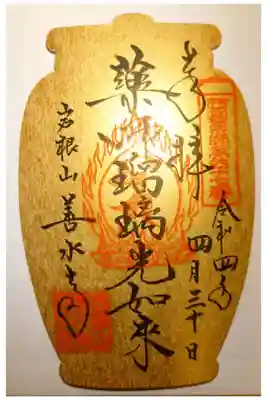 奉拝
令和四年
四月三十日
薬師瑠璃光如來
岩根山
善水寺